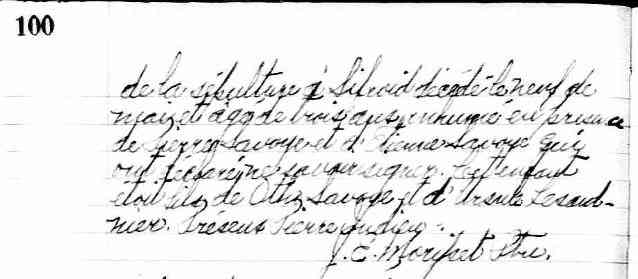 100
de la sépulture d' Sifroid décédé le neuf de
mai et agé de trois ans inhumé en presence
de Pierre Savoye et d'Etienne Savoye qui
ont déclaré ne savoir signer. Cet enfant
était fils de Otha Savoye et d'Ursule Lesaul-
nier. Présent Pierre
J. E. Morisset Ptre.